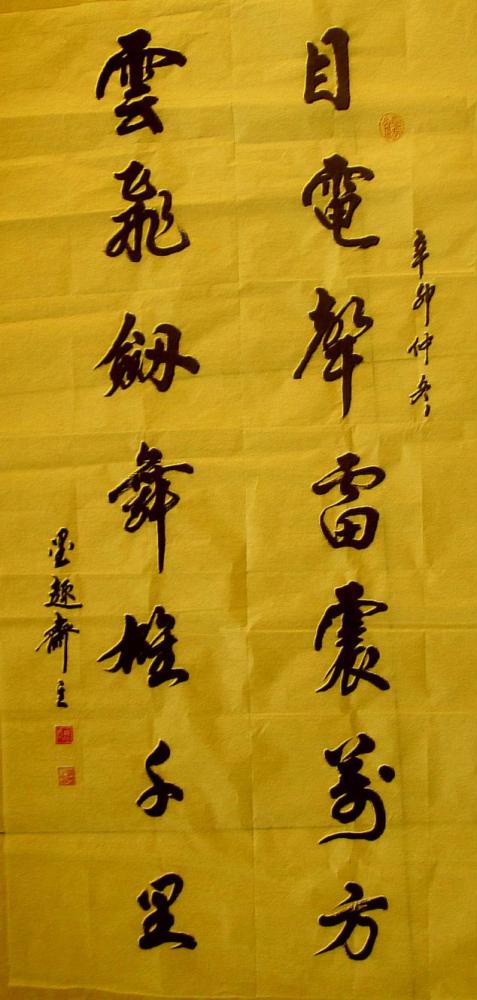 辛卯仲冬
目電聲雷震萬方
雲飛劔舞雄千里
墨趣齋主